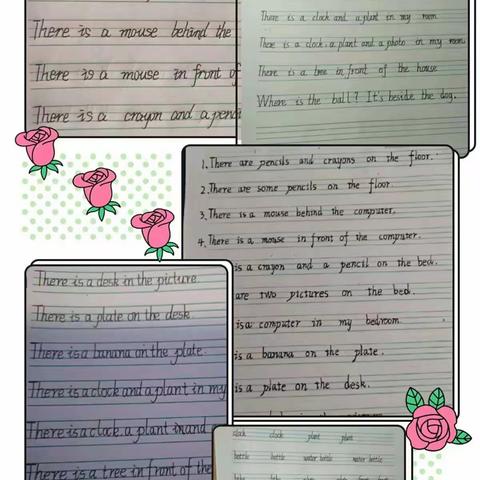 There is a mouse behind the
There is a mouse in front of
There is a crayon and a penci
There is a clock and a plant in my room.
There is a clock, a plant and a photo in my room.
There is a tree in front of the house
Where is the ball? It's beside the dog.
1. There are pencils and crayons on the floor.
2. There are some pencils on the floor.
3. There is a mouse behind the computer.
4. There is a mouse in front of the computer.
is a crayon and a pencil on the bed.
are two pictures on the bed.
is a computer in my bedroom.
is a banana on the plate.
is a plate on the desk.
There is a desk in the picture.
There is a plate on the desk
There is a banana on the plate.
There is a clock and a plant in my
There is a clock. a plant and
There is a tree in front of the
clock clock plant plant
bottle bottle water bottle water bottle